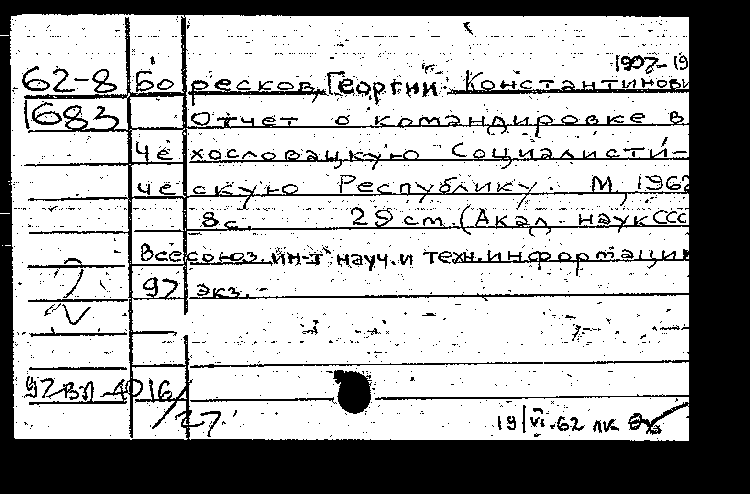 1907-19
62-8 Боресков, Георгий Константинови
1683 Отчет о командировке в
Чехословацкую Социалисти-
ческую Республику. М, 1962
8с. 29 см. (Акад. наук ССС
Всесоюз. ин-т науч. и техн. информации
97 экз. -
92 ВЛ-4016/
27
19/VI-62 лк